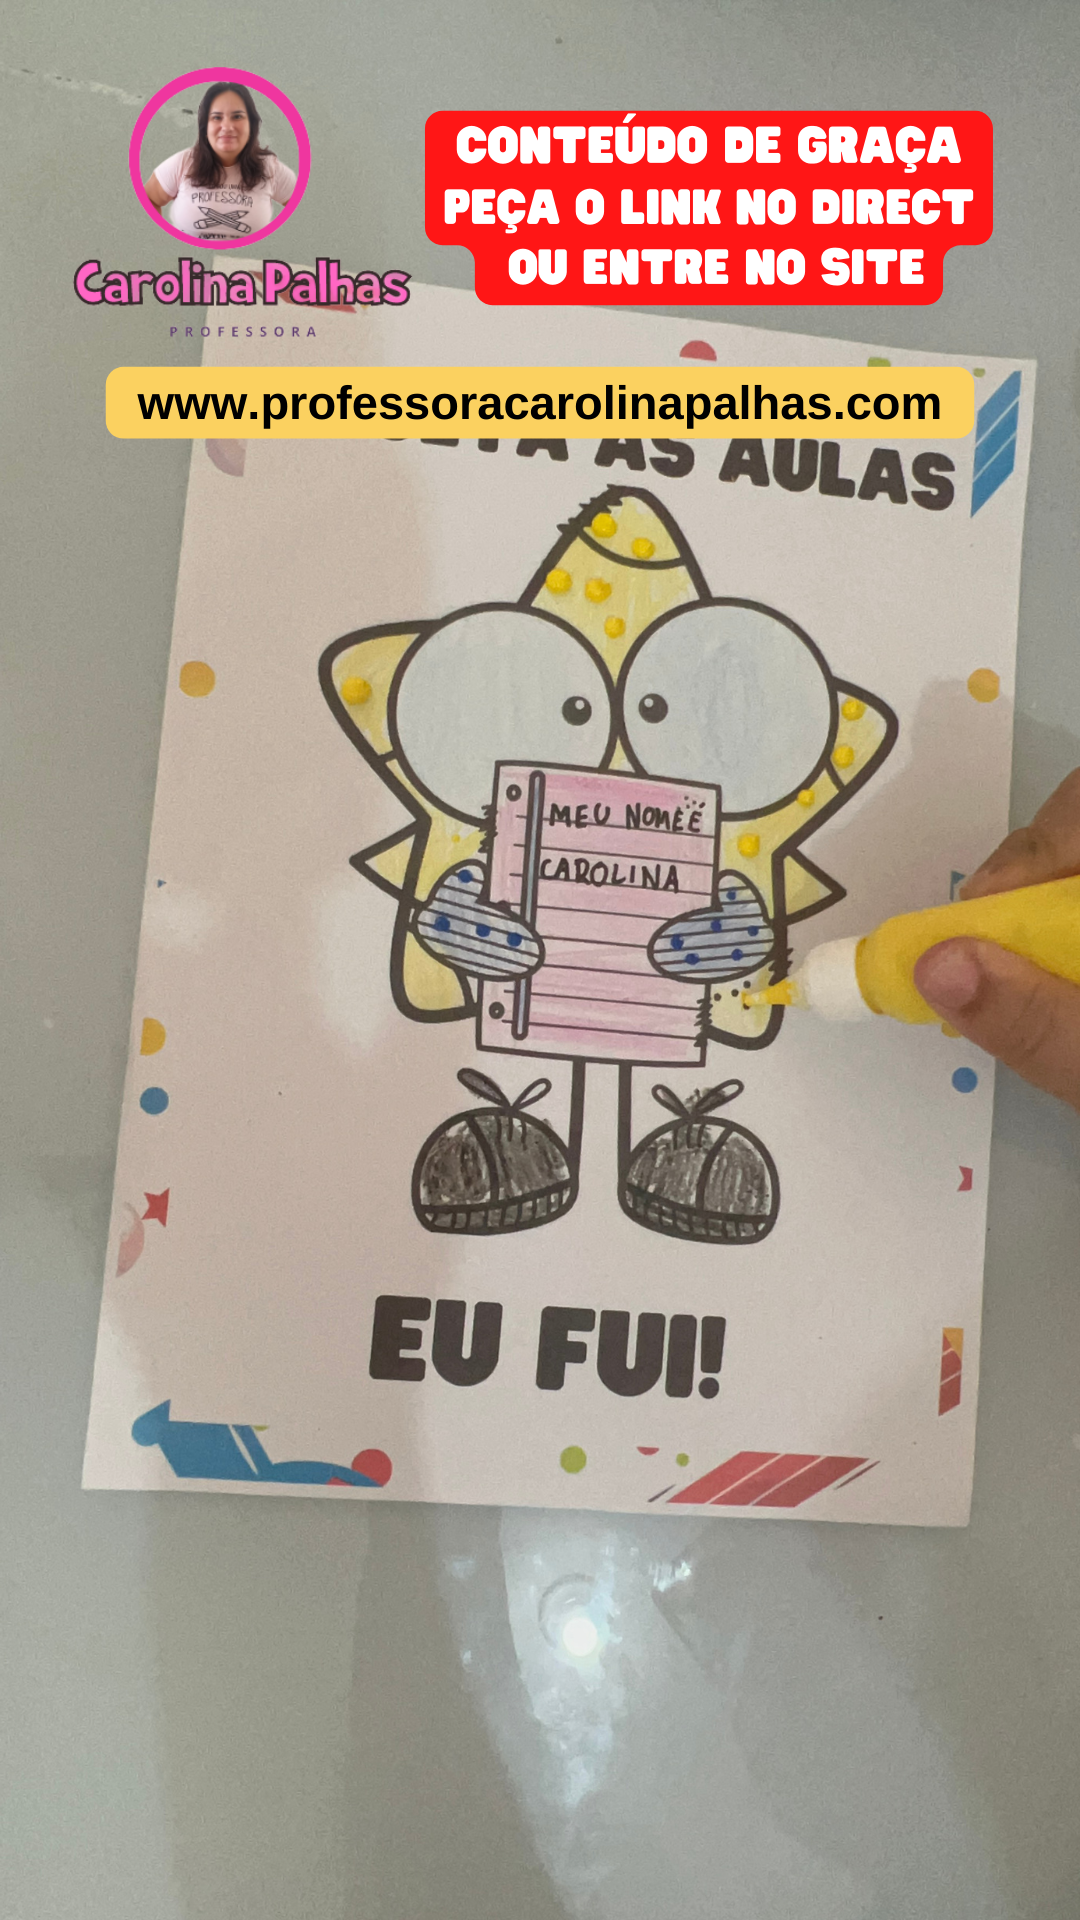 CONTEÚDO DE GRAÇA
PEÇA O LINK NO DIRECT
OU ENTRE NO SITE
PROFESSORA
Carolina Palhas
PROFESSORA
www.professoracarolinapalhas.com
ÀS AULAS
MEU NOME É
CAROLINA
EU FUI!